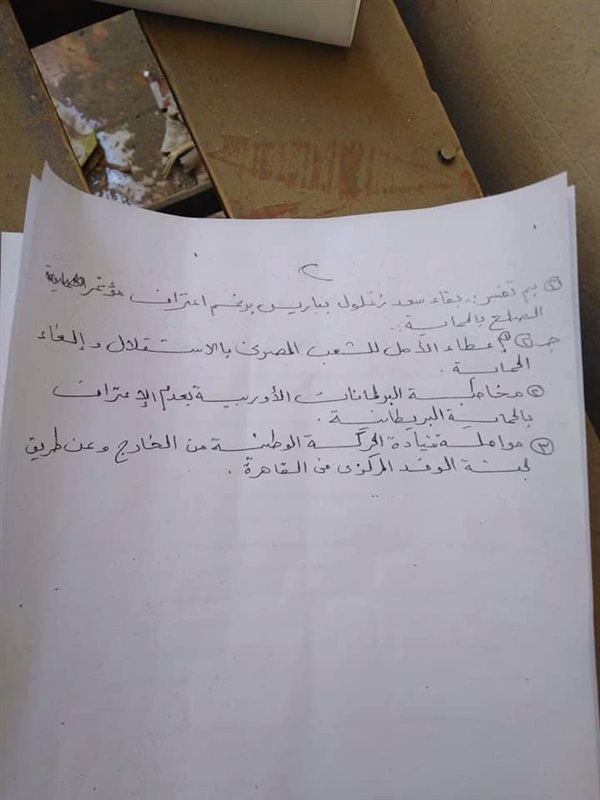 ٢
② بم تفسر : بقاء سعد زغلول بباريس برغم اعتراف مؤتمر
الصلح بالحماية .
جـ ① إعطاء الأمل للشعب المصرى بالاستقلال وإلغاء
الحماية .
② مخاطبة البرلمانات الأوربية بعدم الإعتراف
بالحماية البريطانية .
③ مواصلة قيادة الحركة الوطنية من الخارج وعن طريق
لجنة الوفد المركزى فى القاهرة .